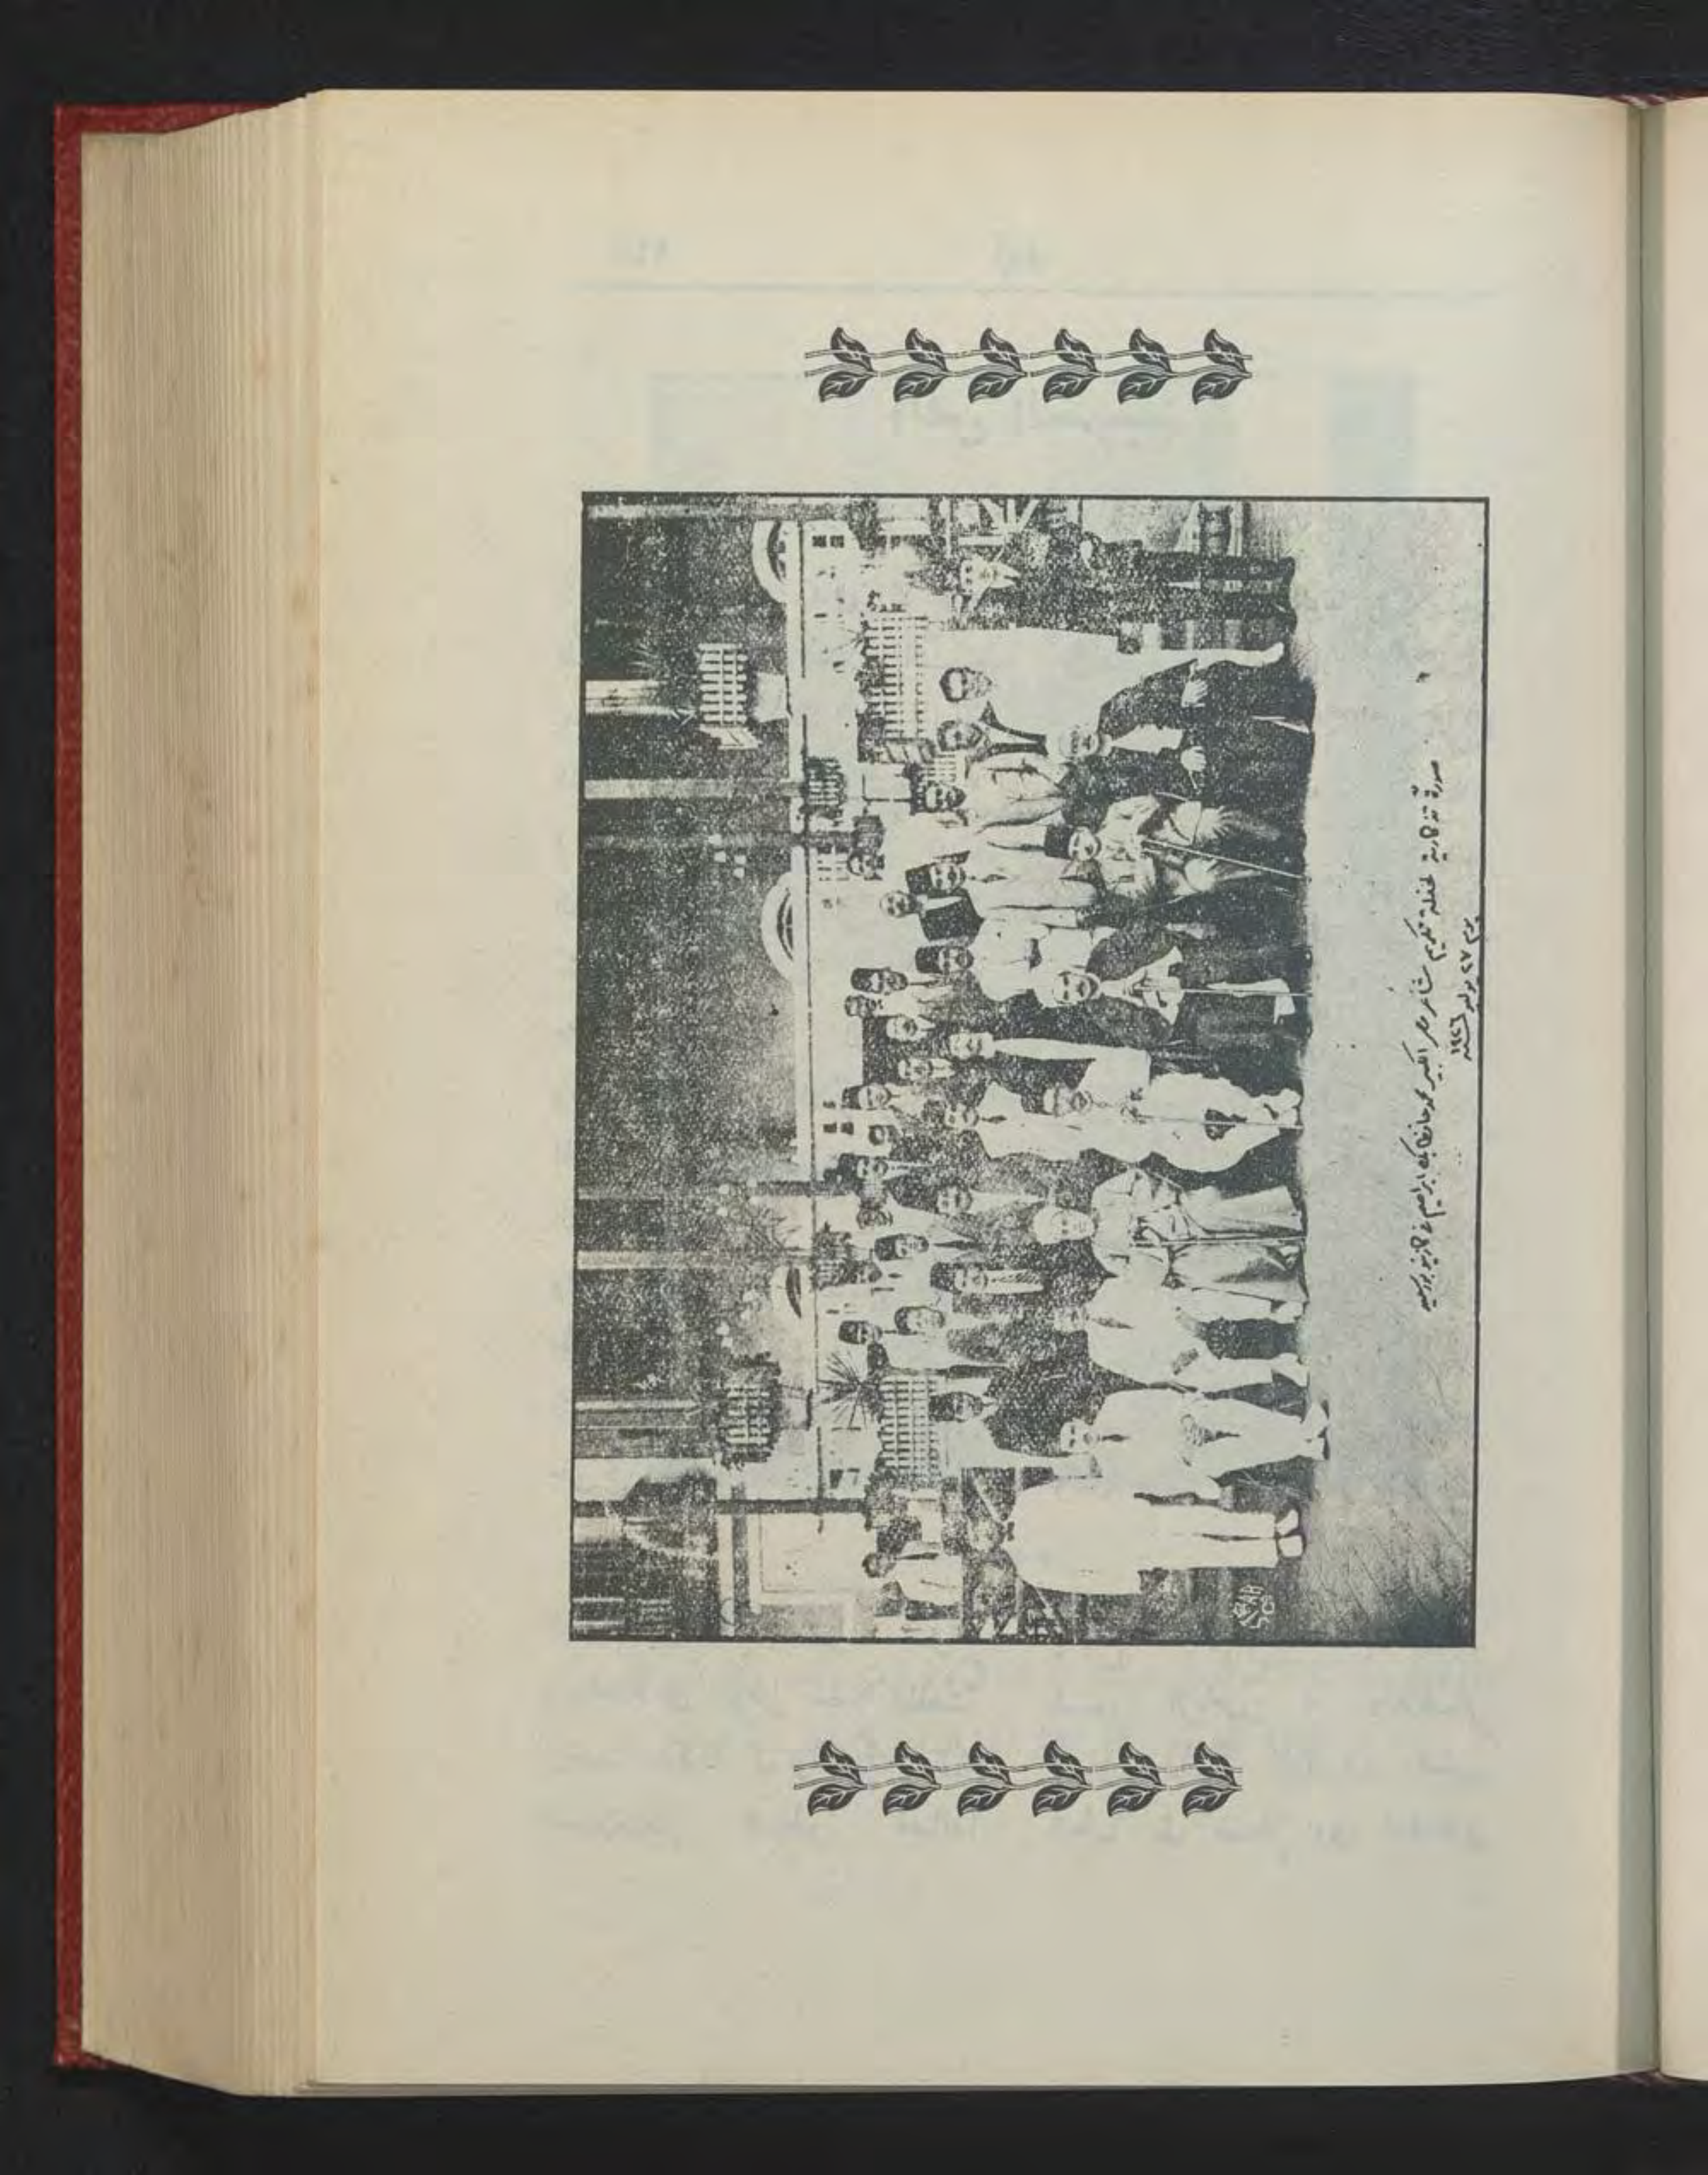 صورة تذكارية لحفلة تكريم شاعر مصر الكبير محمد حافظ بك ابراهيم في كازينو بورسعيد
يوم ٢٧ يوليو سنة ١٩٢٦